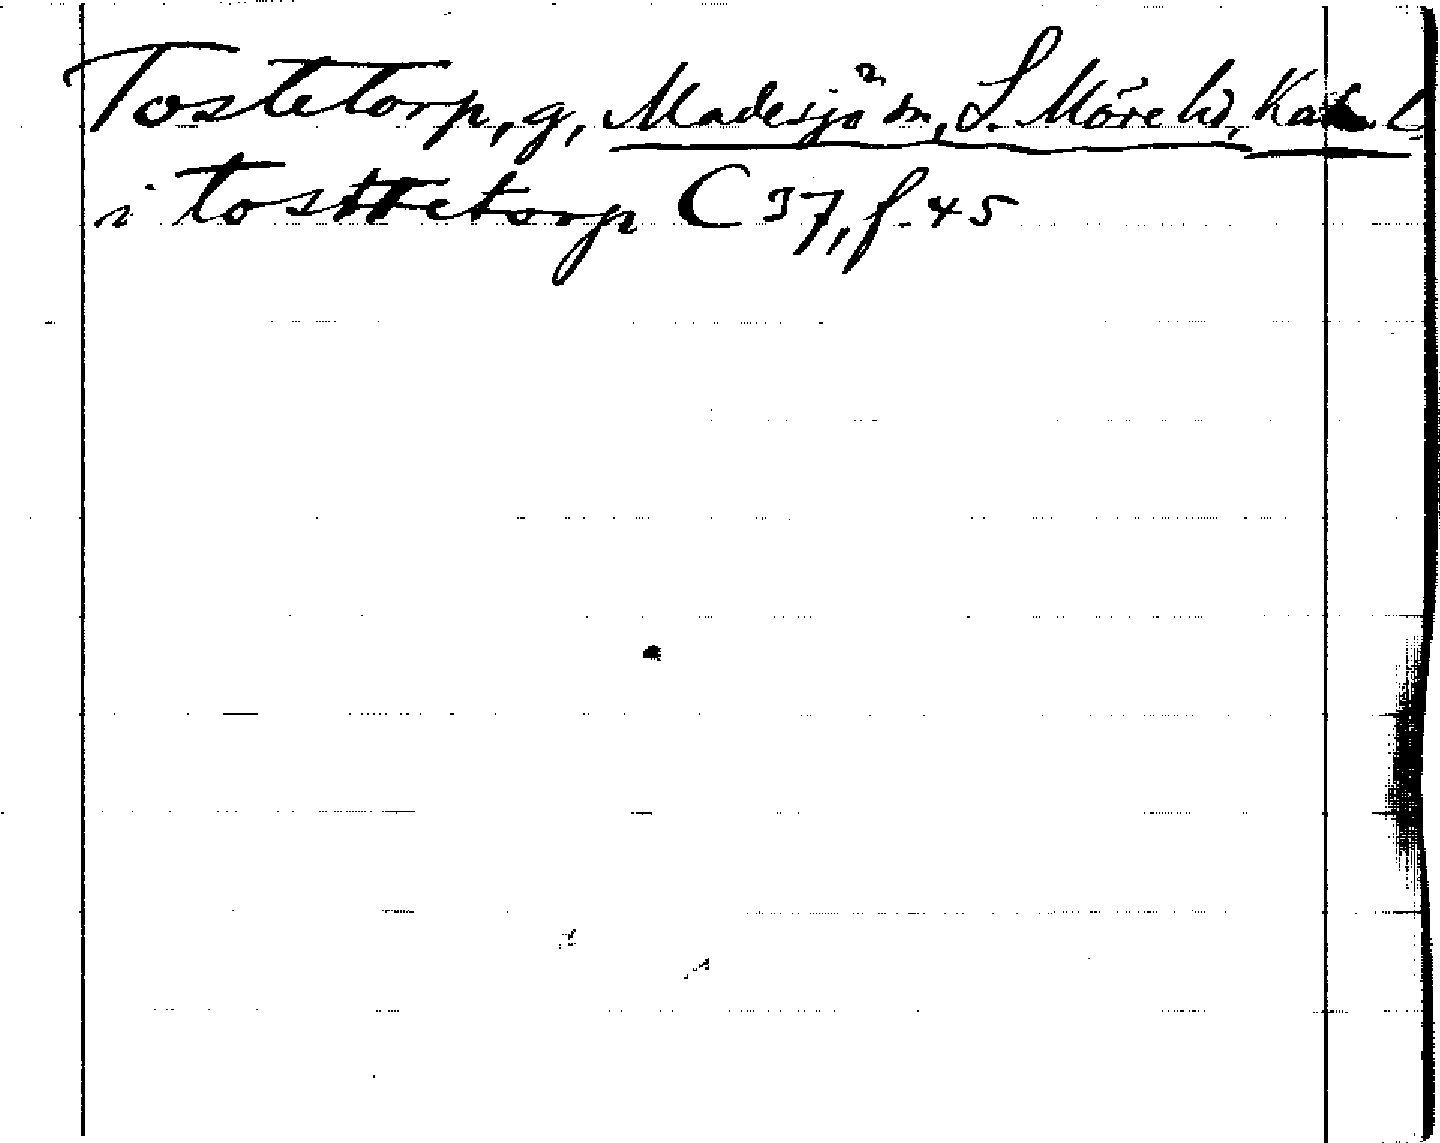 Tostetorp, g, Madesjö sn, S. Möre hd, Kal. l
i tosttetorp C 37, f. 45